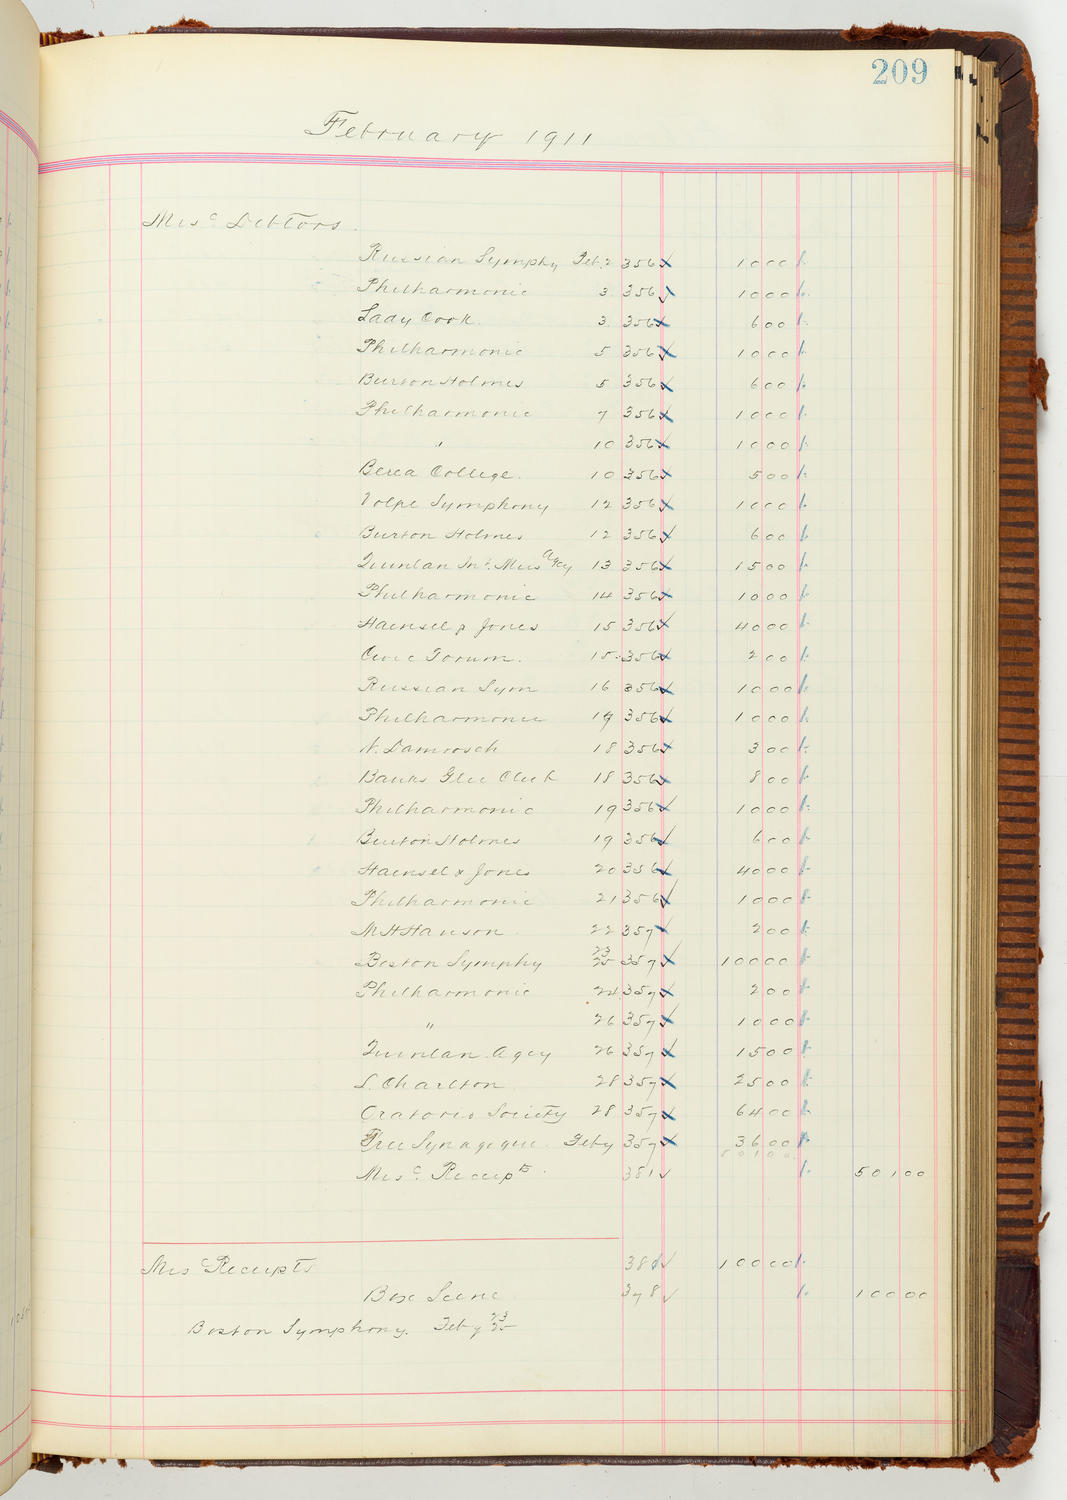 209
February 1911
Misc Debtors.
Russian Symphy Feb. 2 356 1000
Philharmonic 3 356 1000
Lady Cook. 3. 356 600
Philharmonic 5 356 1000
Burton Holmes 5 356 600
Philharmonic 7 356 1000
" 10 356 1000
Berea College. 10 356 500
Volpe Symphony 12 356 1000
Burton Holmes 12 356 600
Quinlan Int. Mus Agcy 13 356 1500
Philharmonic 14 356 1000
Haensel & Jones 15 356 4000
Civic Forum. 15. 356 200
Russian Sym 16 356 1000
Philharmonic 17 356 1000
Damrosch 18 356 300
Banks Glee Club 18 356 800
Philharmonic 19 356 1000
Burton Holmes 19 356 600
Haensel & Jones 20 356 4000
Philharmonic 21 356 1000
M H Hanson 22 357 200
Boston Symphy 23 25 357 10000
Philharmonic 24 357 200
" 26 357 1000
Quinlan Agcy 26 357 1500
L. Charlton 28 357 2500
Oratorio Society 28 357 6400
Free Synagogue. Feby 357 3600
50100
Misc. Receipts. 381 50100
Misc Receipts 381 10000
Box Scene 378 10000
Boston Symphony. Feby 23 25